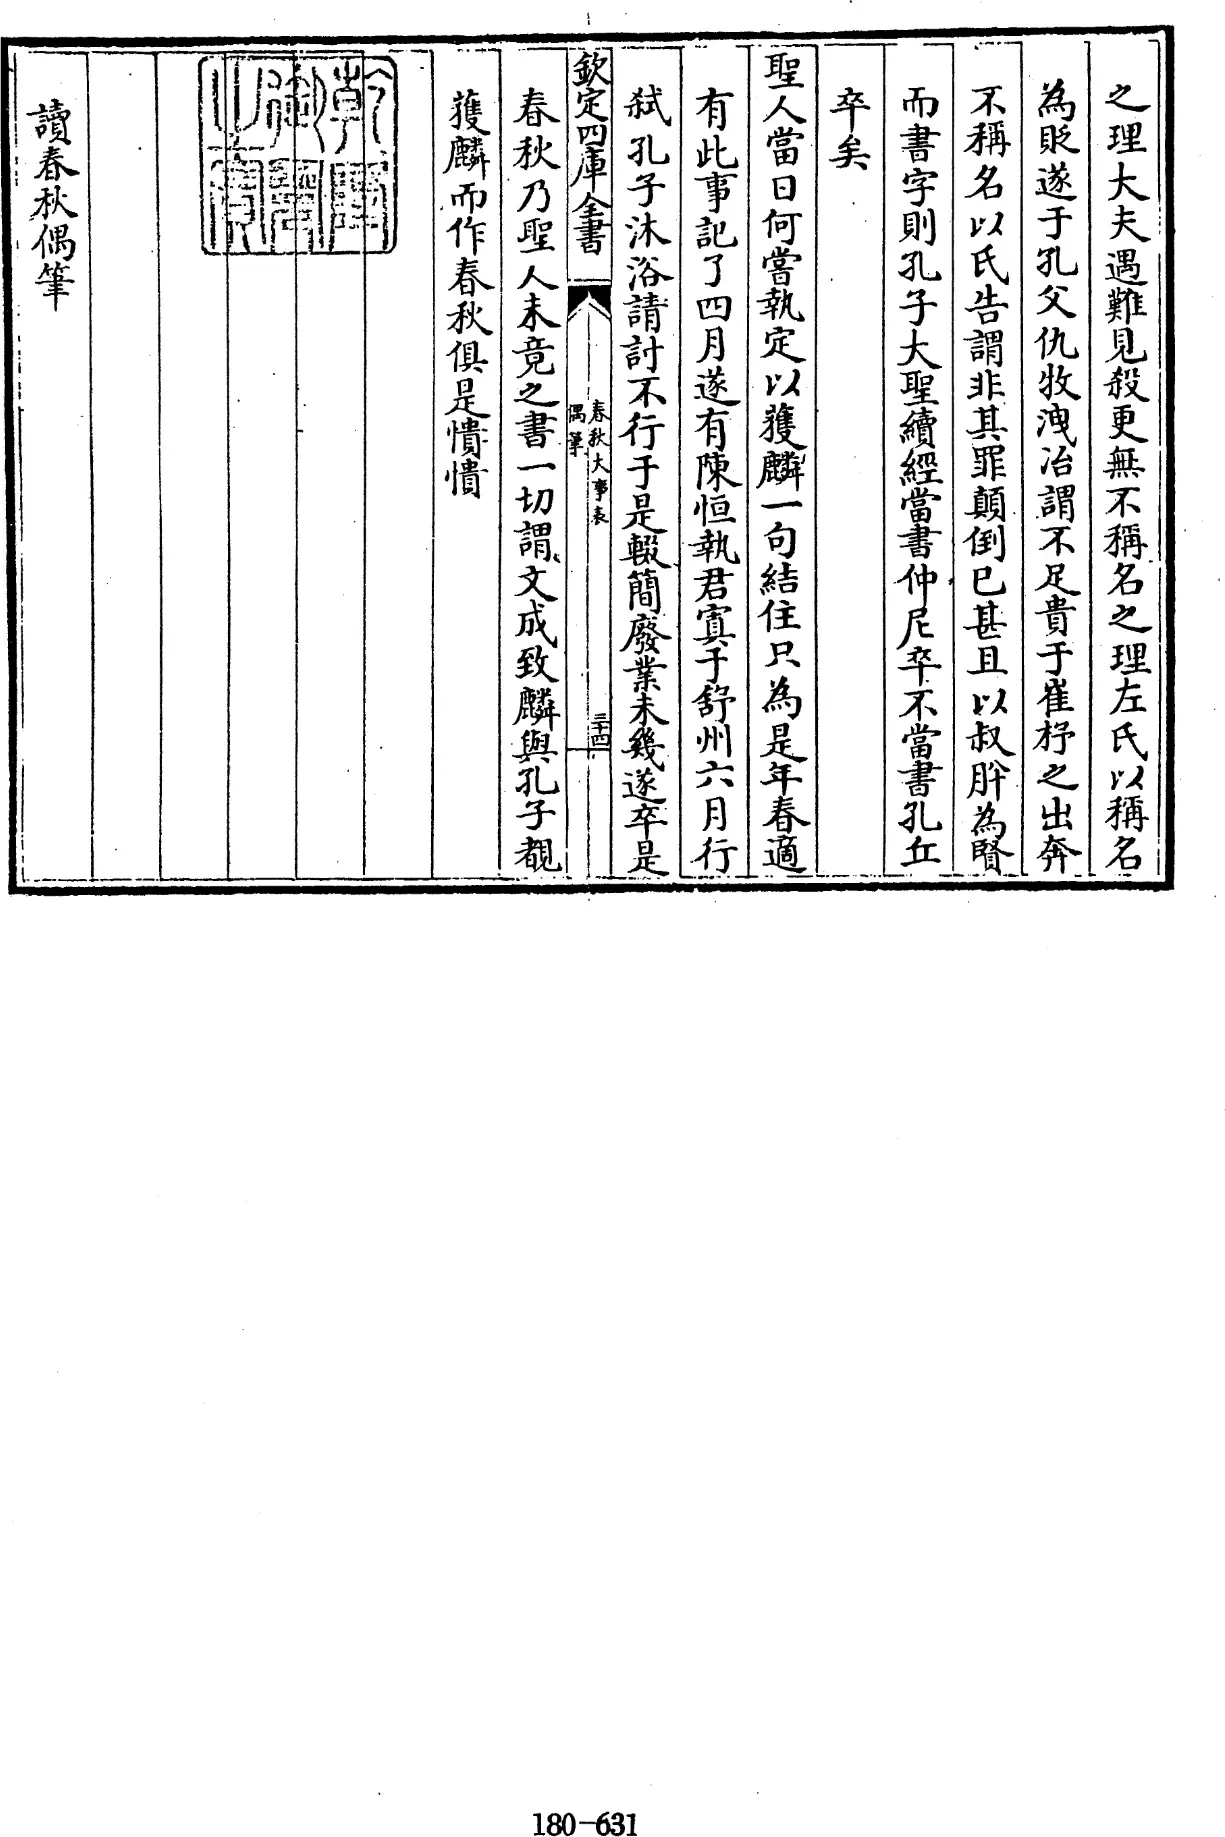 之理大夫遇難見殺更無不稱名之理左氏以稱名
為貶遂于孔父仇牧洩冶謂不足貴于崔杼之出奔
不稱名以氏告謂非其罪顛倒已甚且以叔肸為賢
而書字則孔子大聖續經當書仲尼卒不當書孔丘
卒矣
聖人當日何嘗執定以獲麟一句結住只為是年春適
有此事記了四月遂有陳恒執君寘于舒州六月行
弑孔子沐浴請討不行于是輟簡廢業未幾遂卒是
欽定四庫全書
春秋大事表
偶筆
三十四
春秋乃聖人未竟之書一切謂文成致麟與孔子覩
獲麟而作春秋俱是憒憒
乾隆御覽之寶
讀春秋偶筆
180-631